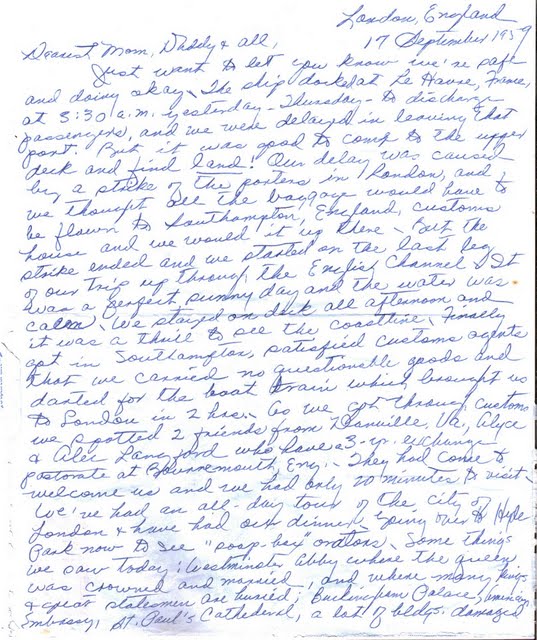 London, England
17 September 1959
Dearest Mom, Daddy & all,
Just want to let you know we're safe
and doing okay. The ship docked at Le Havre, France,
at 3:30 a.m. yesterday - Thursday - to discharge
passengers, and we were delayed in leaving that
port. But it was good to come to the upper
deck and find land! Our delay was caused
by a strike of the porters in London, and
we thought all the baggage would have to
be flown to Southampton, England, customs
house and we would it up there - But the
strike ended and we started on the last leg
of our trip up through the English Channel. It
was a perfect sunny day and the water was
calm. We stayed on deck all afternoon and
it was a thrill to see the coastline. Finally
got in Southampton, satisfied customs agents
that we carried no questionable goods and
darted for the boat train which brought us
to London in 2 hrs. As we got through customs
we spotted 2 friends from Danville, Va, Alyce
& Alec Langford who have a 3-yr. exchange
pastorate at Bournemouth, Eng. They had come to
welcome us and we had only 20 minutes to visit.
We've had an all-day tour of the city of
London & have had our dinner, going over to Hyde
Park now to see "soap-box" orators. Some things
we saw today: Westminster Abby where the queen
was crowned and married, and where many kings
& great statesmen are buried; Buckingham Palace, American
Embassy, St. Paul's Cathederal, a lot of bldgs. damaged